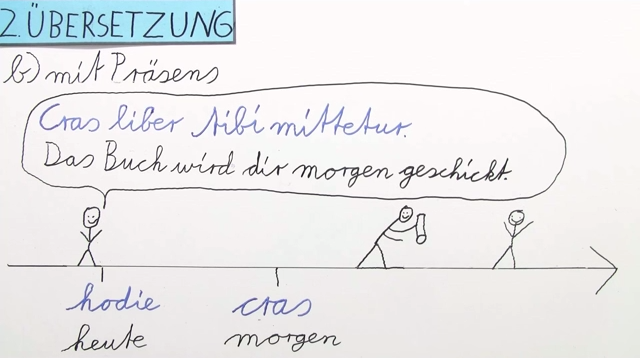 2. ÜBERSETZUNG
b) mit Präsens
Cras liber tibi mittetur.
Das Buch wird dir morgen geschickt.
hodie cras
heute morgen